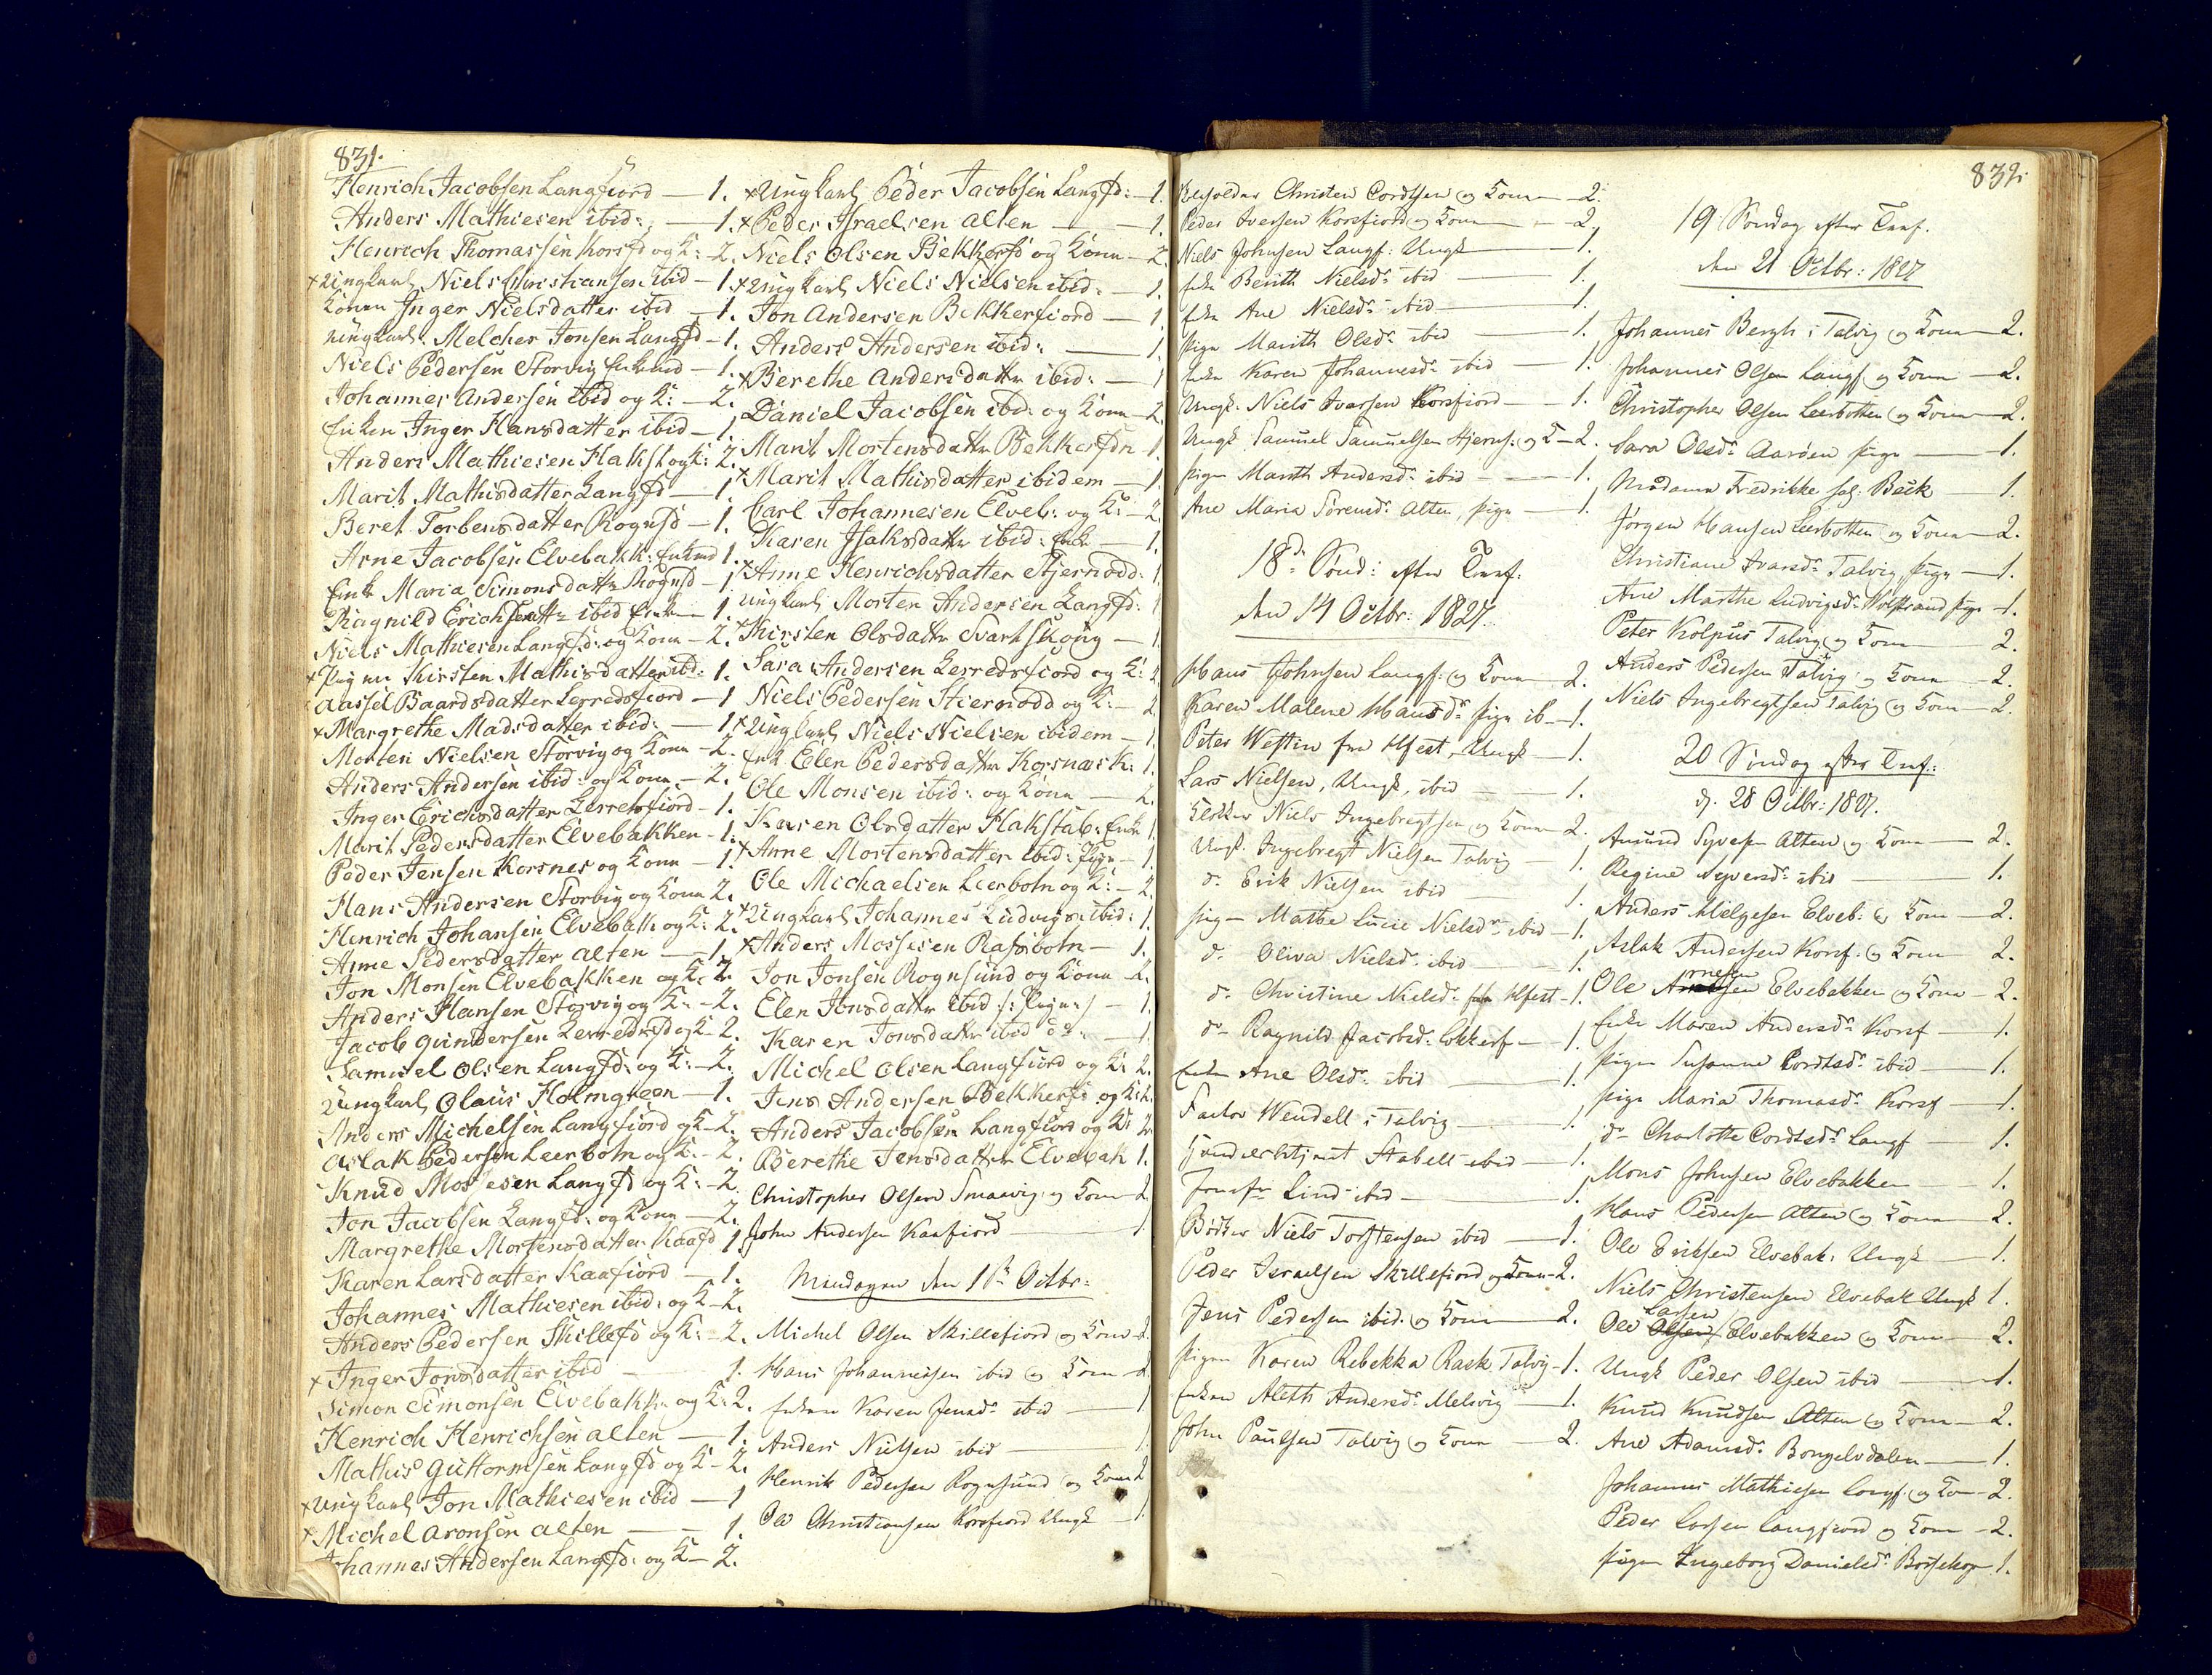 831.
Henrich Jacobsen Langfiord — 1.
Anders Mathiesen ibid: — 1.
Henrich Thomassen Korsfd og K: - 2.
x Ungkarl Niels Christiansen ibid - 1.
Konen Inger Nielsdatter ibid - 1.
Ungkarl Melcher Jonsen Langfd - 1.
Niels Pedersen Storvig Enkmd - 1.
Johannes Andersen ibid og K: - 2.
Enken Inger Hansdatter ibid - 1.
Anders Mathiesen Flakst og K: 2.
Marit Mathisdatter Langfd - 1.
Beret Torbensdatter Rognsd - 1.
Arne Jacobsen Elvebakk: Enkmd 1.
Enk Maria Simonsdattr Rognsd - 1
Ragnild Erichsdattr ibid Enke - 1.
Niels Mathiesen Langfd: og Kona - 2.
x Pigen Kirsten Mathisdatter ibd: 1.
Aassel Baardsdatter Lerredsfiord - 1
x Margrethe Madsdatter ibid: - 1
Morten Nielsen Storvig og Kona - 2.
Anders Andersen ibid: og Kona - 2.
Inger Erichsdatter Lerredsfiord - 1.
Marit Pedersdatter Elvebakken - 1.
Peder Jensen Korsnes og Kona - 1.
Hans Andersen Storvig og Kona 2.
Henrich Johansen Elvebakk og K: 2.
Anne Pedersdatter Alten - 1.
Jon Monsen Elvebakken og K: 2.
Anders Hansen Storvig og K: - 2.
Jacob Gundersen Lerredsfd og K - 2.
Samuel Olsen Langfd: og K: - 2.
Ungkarl Olaus Holmgreen - 1.
Anders Michelsen Langfiord og K - 2.
Aslak Pedersen Leerbotn og K: - 2.
Knud Mosesen Langfd og K: - 2.
Jon Jacobsen Langfd: og Kona - 2.
Margrethe Mortensdatter Kaafd 1.
Karen Larsdatter Kaafiord - 1.
Johannes Mathiesen ibid: og K - 2.
Anders Pedersen Skillefd og K: - 2.
x Inger Jonsdatter ibid - 1.
Simon Simonsen Elvebakk: og K: 2.
Henrich Henrichsen Alten - 1.
Mathis Guttormsen Langfd og K - 2.
x Ungkarl Jon Mathiesen ibid - 1
x Michel Aronsen Alten - 1.
Johannes Andersen Langfd: og K - 2.
x Ungkarl Peder Jacobsen Langfd: - 1.
x Peder Israelsen Alten - 1.
Niels Olsen Bekkerfd og Kona - 2.
x Ungkarl Niels Nielsen ibid: - 1.
Jon Andersen Bekkerfiord - 1
Anders Andersen ibid: - 1.
x Berethe Andersdattr ibid: - 1
Daniel Jacobsen ibd: og Kona - 2
Marit Mortensdattr Bekkerfdn 1.
x Marit Mathisdatter ibidem - 1.
Carl Johannesen Elveb: og K: - 2.
Karen Isaksdattr ibid: Enk - 1.
x Anne Henrichsdatter Stjernodd: 1.
Ungkarl Morten Andersen Langfd: 1
x Kirsten Olsdattr Svartskoug - 1
Sara Andersen Lerredsfiord og K: 2
Niels Pedersen Stiernodd og K: - 2
x Ungkarl Niels Nielsen ibidem - 1.
Enk Elen Pedersdattr Korsnæs K: 1.
Ole Monsen ibid: og Kona - 2.
Karen Olsdatter Flakstab: Enk 1.
x Anne Mortensdatter ibid: Pign - 1.
Ole Michaelsen Leerbotn og K: - 2.
x Ungkarl Johannes Ludvigs: ibid: 1.
x Anders Mossesen Rafsbotn - 1.
Jon Jonsen Rognsund og Kona - 2.
Elen Jonsdattr ibid /: Pigen :/ - 1.
Karen Jonsdattr ibid do: - 1.
Michel Olsen Langfiord og K: 2.
Jens Andersen Bekkerfd og K: 2.
Anders Jacobsen Langfiord og K: 2.
Berethe Jensdatter Elvebak 1.
Christopher Olsen Smaavig og Kona 2
John Andersen Kaafiord - 1.
Mandagen den 1st Octbr:
Michel Olsen Skillefiord og Kona - 2.
Hans Johannessen ibid og Kona - 2
Enken Karen Jensdr ibid - 1
Anders Nielsen ibid - 1.
Henrik Pedersen Rognsund og Kona 2
Ole Christiansen Korsfiord Ungk - 1.
832.
Christen Cordtsen og Kona - 2.
Peder Iversen Korsfiord og Kona - 2.
Niels Johnsen Langf: Ungk - 1.
Enke Berith Nielsdr ibid - 1.
Enke Ane Nielsdr ibid - 1.
Pigen Marith Olsdr ibid - 1.
Enke Karen Johannesdr ibid - 1.
Ungk. Niels Ivarsen Korsfiord - 1.
Ungk Samuel Samuelsen Stjerns: og K - 2.
Pigen Marith Andersd. ibid - 1.
Ane Maria Sørensd: Alten, Pige - 1.
18d. Sønd: efter Trinf:
den 14 Octbr: 1827.
Hans Johnsen Langf: og Kona 2.
Karen Malene Hansdr Pige ib - 1.
Peter Westin fra Hfest, Ungk - 1.
Lars Nielsen, Ungk, ibid - 1.
Klokker Niels Ingebregtsen og Kona 2.
Ungk. Ingebregt Nielsen Talvig 1.
do Erik Nielsen ibid 1.
Pige Marthe Lucie Nielsdr ibid - 1.
do Oliva Nielsd. ibid - 1.
do Christine Nielsdr Hfest - 1.
do Ragnild Jacobsd: Bekkerf - 1.
Enke Ane Olsd. ibid - 1.
Factor Wendell i Talvig 1.
Stabell ibid - 1.
Jomfr Lind ibid - 1.
Bødker Niels Torstensen ibid - 1.
Peder Israelsen Skillefiord og Kona - 2.
Jens Pedersen ibid. og Kona 2.
Pigen Karen Rebekka Rask Talvig - 1.
Enken Aleth Andersdr Melsvig - 1.
John Paulsen Talvig og Kona - 2.
19 Søndag efter Trinf.
den 21 Octbr: 1827
Johannes Bergh i Talvig og Kona 2.
Johannes Olsen Langf og Kona - 2.
Christopher Olsen Leerbotten og Kona 2.
Sara Olsdr Aarøen Pige 1.
Madame Fredrikke sal. Beck 1.
Jørgen Hansen Leerbotten og Kona - 2.
Christiane Ivarsdr Talvig Pige - 1.
Ane Marthe Ludvigsdr Pige - 1.
Peter Kolpus Talvig og Kona 2.
Anders Pedersen Talvig og Kona 2.
Niels Ingebregtsen Talvig og Kona - 2.
20 Søndag efter Trinf:
d. 28 Octbr: 1827.
Amund Syvers: Alten og Kona 2.
Regine Syversdr ibid 1.
Anders Helgesen Elveb: og Kona 2.
Aslak Andersen Korsf: og Kona 2.
Ole Arnesen Elvebakken og Kona - 2.
Enke Maren Andersdr Korsf 1.
Pigen Susanne Cordtsdr ibid 1.
Pige Maria Thomasdr Korsf 1.
do Charlotte Cordtsdr Langf 1.
Mons Johnsen Elvebakken - 1.
Hans Pedersen Alten og Kona 2.
Ole Eriksen Elvebak: Ungk 1.
Niels Christensen Elvebak Ungk 1.
Ole Olsen Larsen Elvebakken og Kona 2.
Ungk Peder Olsen ibid 1.
Knud Knudsen Alten og Kona 2.
Ane Adamsd. Bongelvdalen 1.
Johannes Mathiesen Langf. og Ko - 2.
Peder Larsen Langfiord og Kona - 2.
Pigen Ingeborg Danielsdr Bossekop 1.